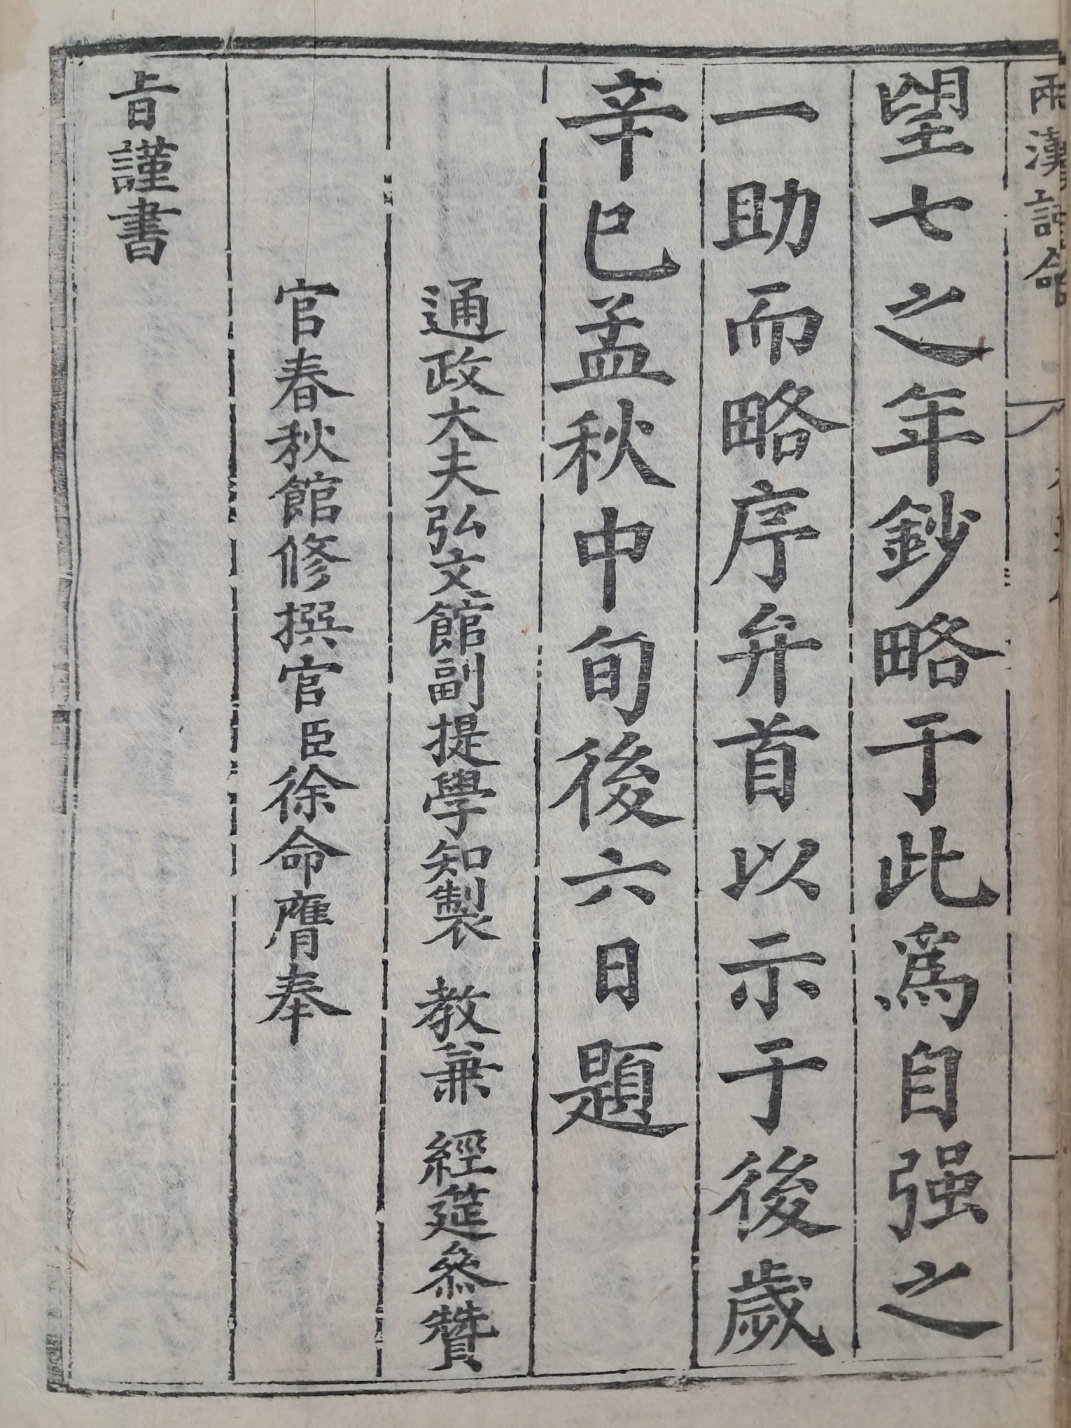 兩漢詞命
望七之年鈔略于此爲自强之
一助而略序弁首以示于後歲
辛巳孟秋中旬後六日題
通政大夫弘文館副提學知製 教兼 經筵叅贊
官春秋館修撰官臣徐命膺奉
旨謹書